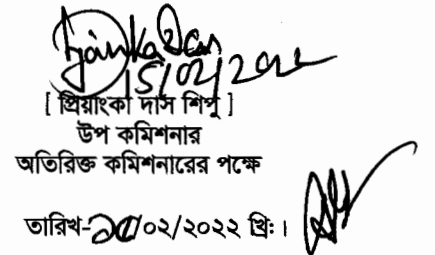 15/02/2022
[ প্রিয়াংকা দাস শিপু ]
উপ কমিশনার
অতিরিক্ত কমিশনারের পক্ষে
তারিখ-১৫/০২/২০২২ খ্রি:।